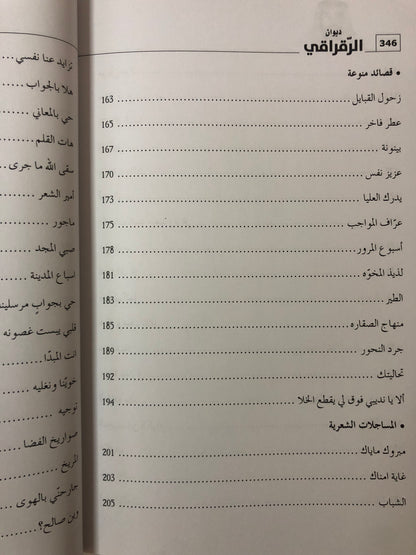 346
ديوان
الرّقراقي
• قصائد منوعة
زحول القبايل ........ 163
عطر فاخر ........ 165
بينونة ........ 167
عزيز نفس ........ 170
يدرك العليا ........ 173
عرّاف المواجب ........ 175
أسبوع المرور ........ 178
لذيذ المخوّه ........ 181
الطير ........ 183
منهاج الصقاره ........ 185
جرد النحور ........ 189
تحاليتك ........ 192
ألا يا نديبي فوق لي يقطع الخلا ........ 194
• المساجلات الشعرية
مبروك ماياك ........ 201
غاية امناك ........ 203
الشباب ........ 205
تزايد عنا نفسي ........
هلا بالجواب ........
حي بالمعاني ........
هات القلم ........
سقى الله ما جرى ........
أمير الشعر ........
ماجور ........
صبي المجد ........
اسباع المدينة ........
حي بجوابٍ مرسلينه
قلبي يبست غصونه
انت المبدّا ........
خويّنا ونغليه ........
توجيه ........
صواريخ الفضا ........
المريخ ........
جارحتّي بالهوى ........
وين صالح؟ ........